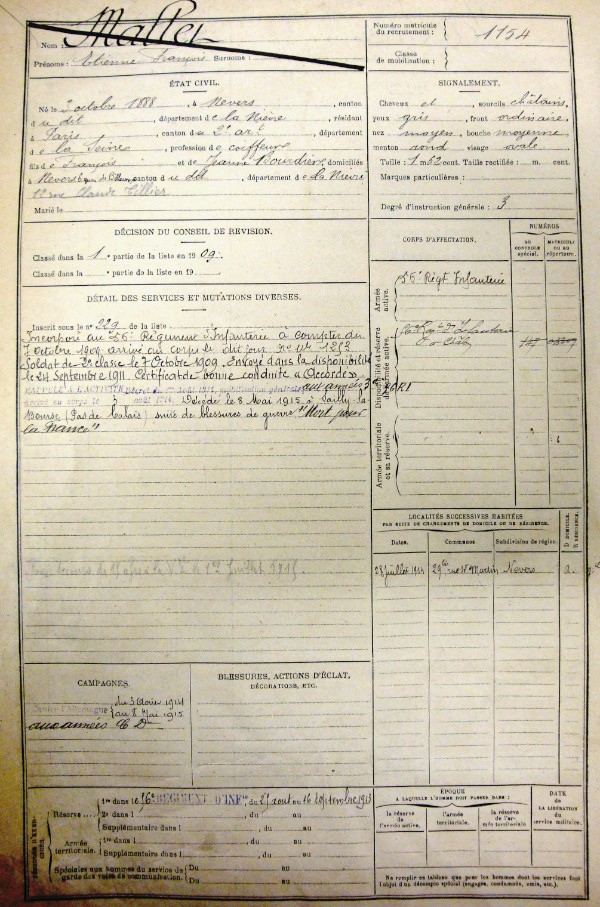 Nom : Mallet
Prénoms : Etienne François Surnoms :
Numéro matricule du recrutement : 1154
Classe de mobilisation :
ÉTAT CIVIL.
Né le 2 octobre 1888, à Nevers, canton
dudit, département de la Nièvre, résidant
à Paris, canton du 2e arrt, département
de la Seine, profession de coiffeur
fils de François et de Jeanne Bourdier, domiciliés
à Nevers canton dudit, département de la Nièvre
12 rue Claude Tillier
Marié le
SIGNALEMENT.
Cheveux et sourcils châtains,
yeux gris, front ordinaire,
nez moyen, bouche moyenne
menton rond visage ovale
Taille : 1 m. 62 cent. Taille rectifiée : m. cent.
Marques particulières :
Degré d'instruction générale : 3
DÉCISION DU CONSEIL DE REVISION.
Classé dans la 1re partie de la liste en 1909.
Classé dans la partie de la liste en 19
DÉTAIL DES SERVICES ET MUTATIONS DIVERSES.
Inscrit sous le no 229 de la liste
Incorporé au 56e Régiment d'Infanterie à compter du
7 octobre 1909 arrivé au corps le dit jour
Soldat de 2e classe le 7 Octobre 1909. Envoyé dans la disponibilité
le 24 Septembre 1911. Certificat de bonne conduite "Accordé"
RAPPELÉ À L'ACTIVITÉ
aux armées
Décédé le 8 Mai 1915 à Sailly-la-
Bourse (Pas de Calais) suite de blessures de guerre "Mort pour
la France"
CORPS D'AFFECTATION.
NUMÉROS
AU CONTROLE spécial.
MATRICULE OU AU répertoire.
Armée active.
56e Régt Infanterie
Disponibilité et réserve de l'armée active.
Armée territoriale et sa réserve.
LOCALITÉS SUCCESSIVES HABITÉES
PAR SUITE DE CHANGEMENTS DE DOMICILE OU DE RÉSIDENCE.
Dates. Communes Subdivision de région. D. DOMICILE. R. RÉSIDENCE.
28 juillet 1911 rue St Martin Nevers
CAMPAGNES.
Contre l'Allemagne du 3 Août 1914
au 8 Mai 1915
aux armées
BLESSURES, ACTIONS D'ÉCLAT,
DÉCORATIONS, ETC.
PÉRIODES D'EXERCICES.
Réserve 1re dans le RÉGIMENT D'INFie, du 27 août au 16 septembre 1913
2e dans l , du au
Supplémentaire dans l , du au
Armée territoriale. 1re dans l , du au
Supplémentaire dans l , du au
Spéciales aux hommes du service de garde des voies de communication. Du au
Du au
ÉPOQUE
A LAQUELLE L'HOMME DOIT PASSER DANS :
la réserve de l'armée active. l'armée territoriale. la réserve de l'armée territoriale
DATE DE LA LIBÉRATION du service militaire.
Ne remplir ce tableau que pour les hommes dont les services font
l'objet d'un décompte spécial (engagés, condamnés, omis, etc.).